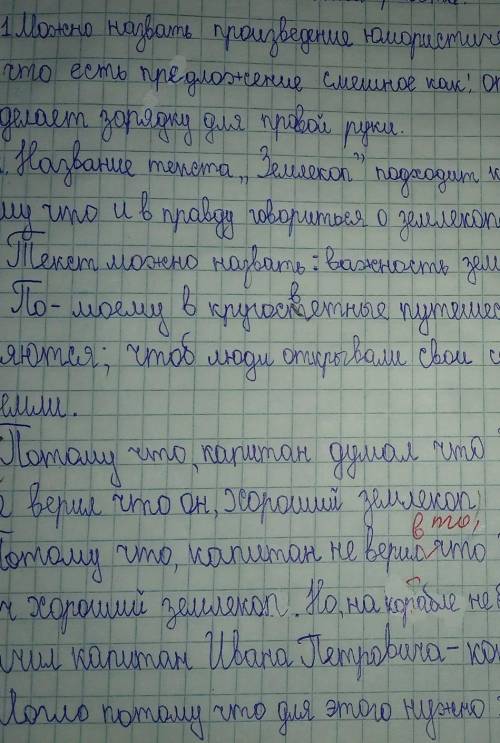 1 Можно назвать произведение юмористиче
что есть предложение смешное как: он
делает зарядку для правой руки.
. Название текста „Землекоп" подходит
му что и в правду говориться о землекоп
Текст можно назвать: важность зем
По-моему в кругосветные путешес
яются; чтоб люди открывали свои
емли.
Потому что, капитан думал что
верил что он, хороший землекоп
Потому что, капитан не верил в то, что
хороший землекоп. Но, на корабле не
чил капитан Ивана Петровича-ко
Могло потому что для этого нужно